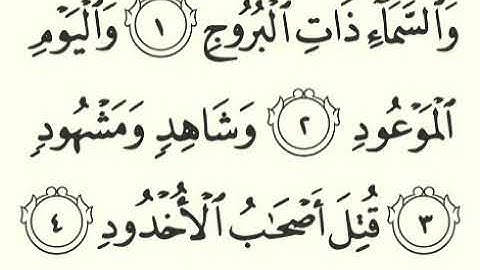 وَٱلسَّمَآءِ ذَاتِ ٱلْبُرُوجِ ١ وَٱلْيَوْمِ
ٱلْمَوْعُودِ ٢ وَشَاهِدٍ وَمَشْهُودٍ
٣ قُتِلَ أَصْحَٰبُ ٱلْأُخْدُودِ ٤